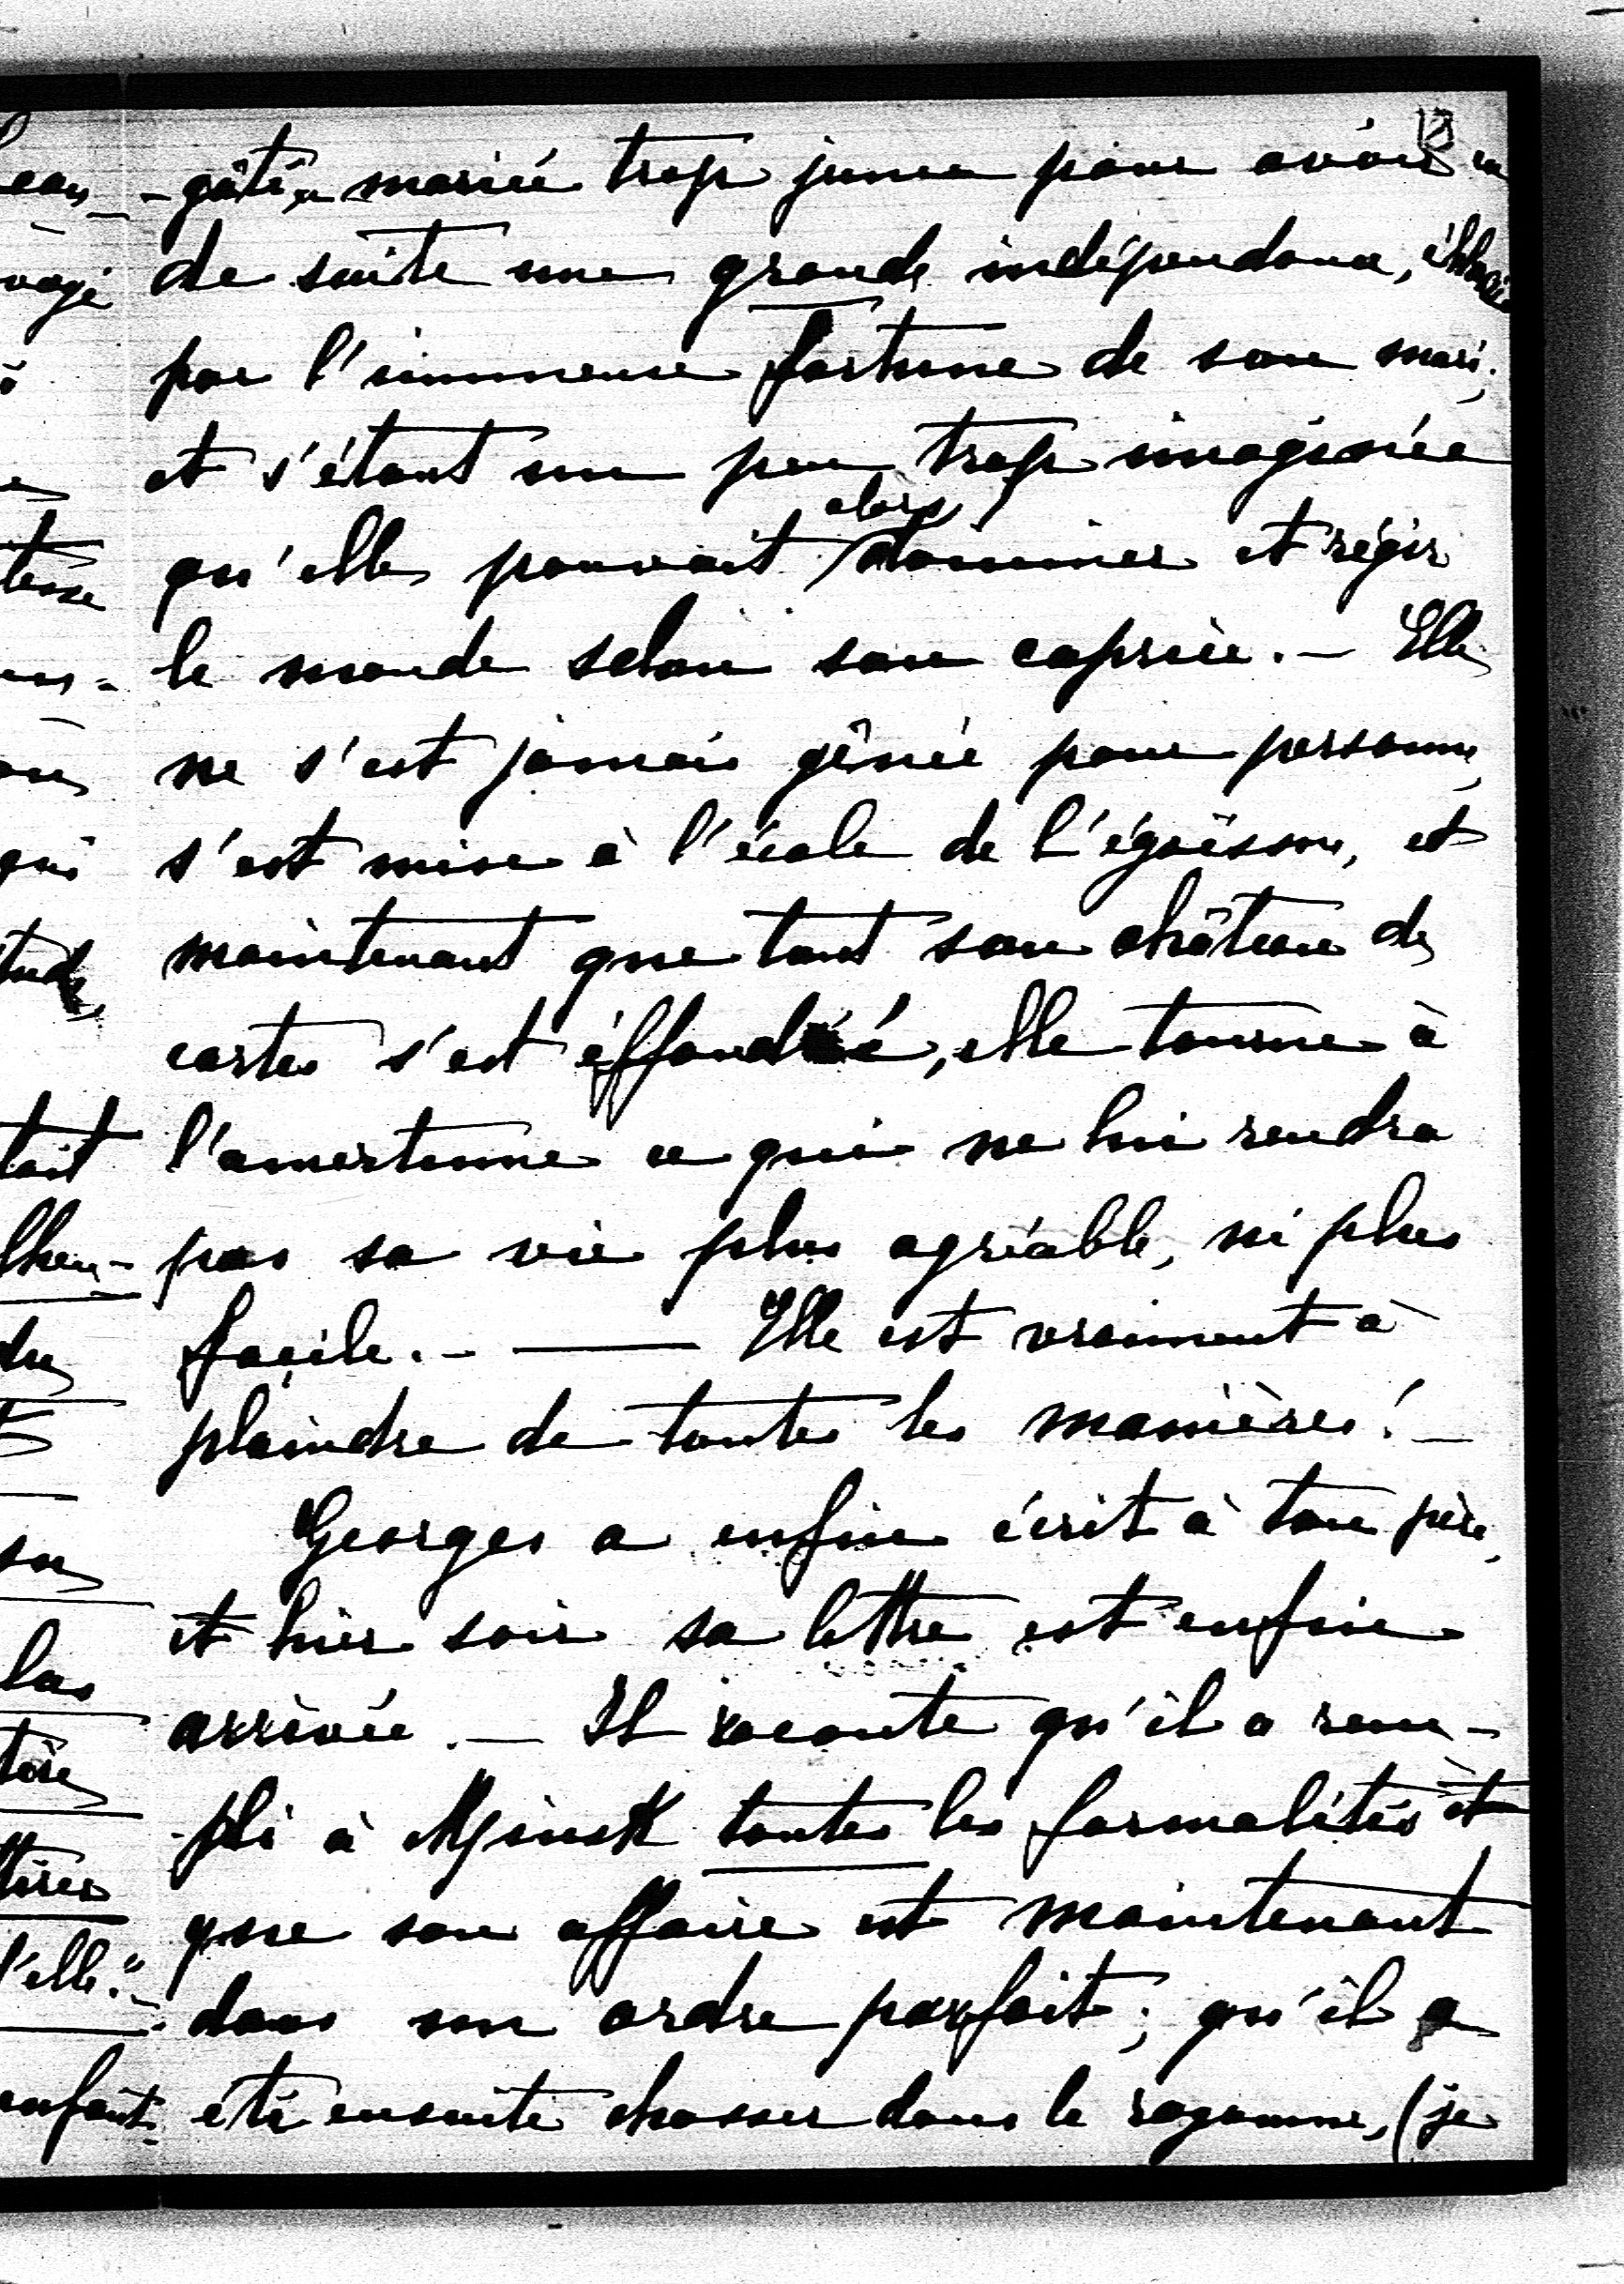 -gâtée, mariée trop jeune pour avoir eu
de suite une grande indépendance, éblouie
par l'immense fortune de son mari,
et s'étant un peu trop imaginée
qu'elle pouvait alors dominer et régir
le monde selon son caprice. — Elle
ne s'est jamais gênée pour personne,
s'est mise à l'école de l'égoïsme, et
maintenant que tout son château de
cartes s'est éffondré, elle tourne à
l'amertume ce qui ne lui rendra
pas sa vie plus agréable, ni plus
facile. — — Elle est vraiment à
plaindre de toutes les manières! —
Georges a enfin écrit à ton père,
et hier soir sa lettre est enfin
arrivée. — Il raconte qu'il a rem-
pli à Minsk toutes les formalités et
que son affaire est maintenant
dans un ordre parfait; qu'il a
été ensuite chasser dans le royaume, (je